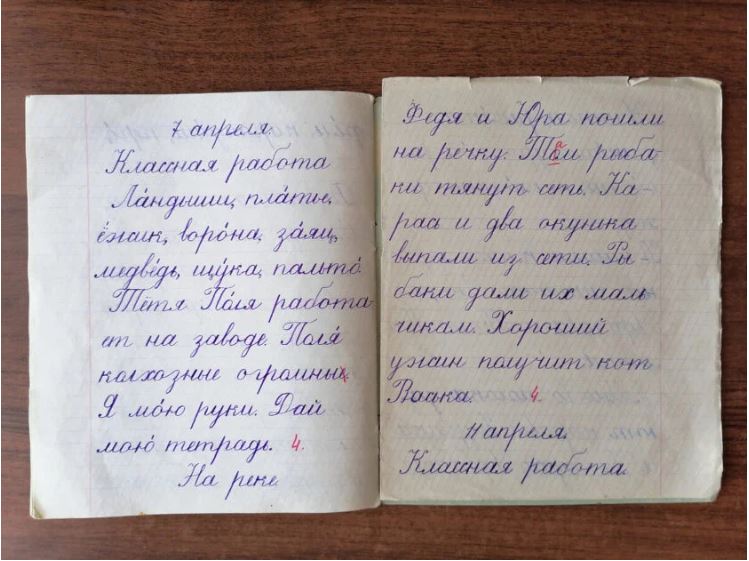 7 апреля.
Классная работа
Ла́ндыши, пла́тье,
ёжик, воро́на, за́яц,
медве́дь, щу́ка, пальто́.
Тётя По́ля работа-
ет на заводе. Поля́
колхозные огромны.
Я мо́ю руки. Дай
мою́ тетрадь. 4.
На реке
Федя и Юра пошли
на речку. Там рыба-
ки тянут сеть. Ка-
рась и два окушка
выпали из сети. Ры-
баки дали их маль
чикам. Хороший
ужин получит кот
Васька. 4.
11 апреля.
Классная работа.